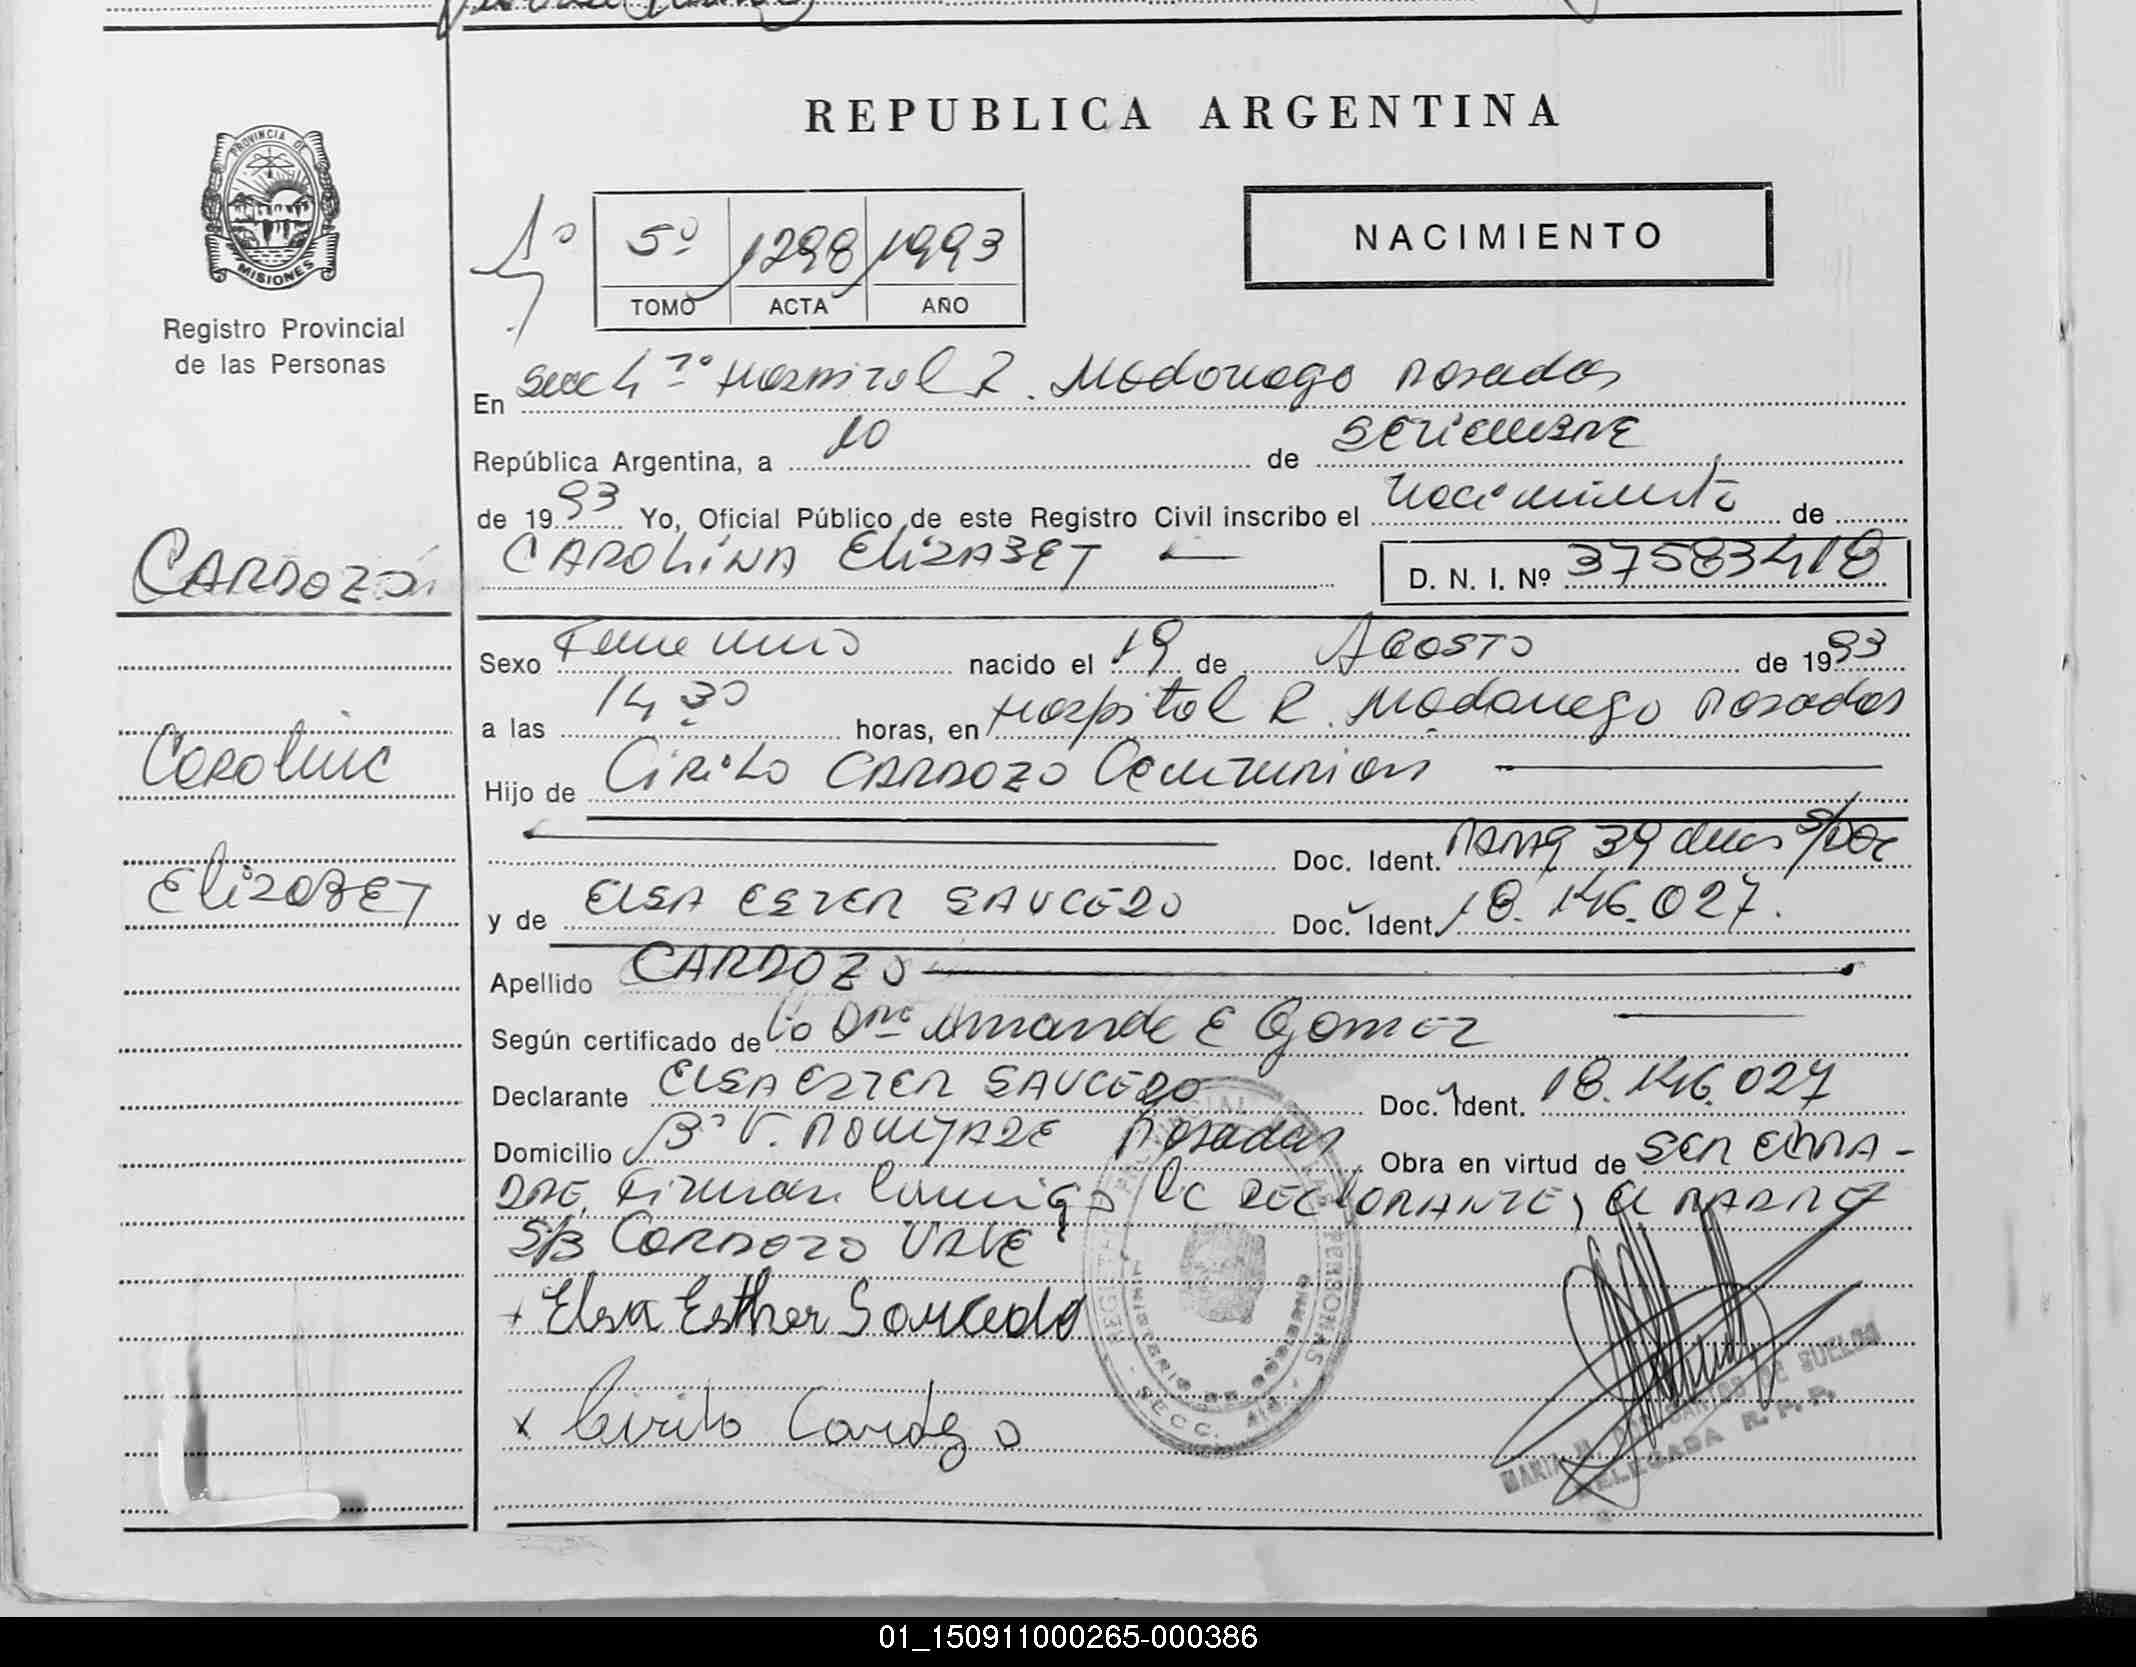 REPUBLICA ARGENTINA
PROVINCIA DE MISIONES
Registro Provincial
de las Personas
1º
5º 1298 1993
TOMO ACTA AÑO
NACIMIENTO
En Secc 4ta Hospital R. Madariaga Posadas
República Argentina, a 10 de SETIEMBRE
de 1993 Yo, Oficial Público de este Registro Civil inscribo el nacimiento de
CAROLINA ELIZABET
D. N. I. Nº 37583418
CARDOZO
Carolina
Elizabet
Sexo Femenino nacido el 19 de AGOSTO de 1993
a las 14 30 horas, en Hospital R. Madariaga Posadas
Hijo de CIRILO CARDOZO
Doc. Ident. 39
y de ELSA ESTER SAUCEDO Doc. Ident. 18.146.027.
Apellido CARDOZO
Según certificado de la Dra Amanda E Gomez
Declarante ELSA ESTER SAUCEDO Doc. Ident. 18.146.027
Domicilio Bº V. Posadas Obra en virtud de SER
DRE. Firman conmigo la DECLARANTE, el PADRE
S/B CARDOZO VALE
+ Elsa Esther Saucedo
x Cirilo Cardozo
REGISTRO PROVINCIAL DE LAS PERSONAS
MINISTERIO DE GOBIERNO
SECC. 4ta.
MARIA M. DOS SANTOS DE
DELEGADA R. P. P.
01_150911000265-000386